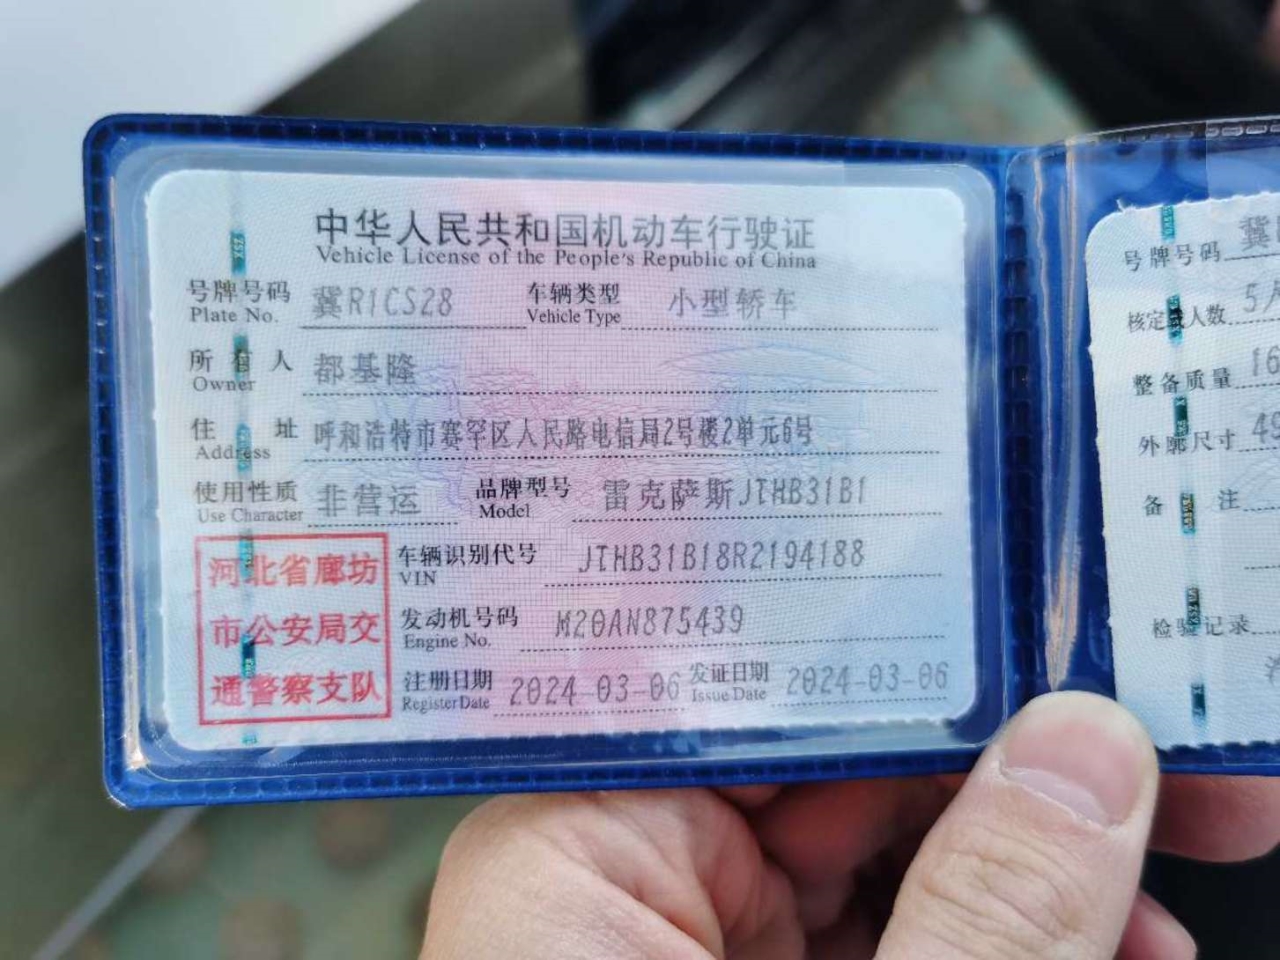 中华人民共和国机动车行驶证
Vehicle License of the People's Republic of China
号牌号码 冀R1CS28 车辆类型 小型轿车
Plate No. Vehicle Type
所有人 都基隆
Owner
住址 呼和浩特市赛罕区人民路电信局2号楼2单元6号
Address
使用性质 非营运 品牌型号 雷克萨斯JTHB31B1
Use Character Model
车辆识别代号 JTHB31B18R2194188
VIN
发动机号码 M20AN875439
Engine No.
注册日期 2024-03-06 发证日期 2024-03-06
Register Date Issue Date
河北省廊坊
市公安局交
通警察支队
号牌号码 冀
核定载人数 5人
整备质量 16
外廓尺寸 49
备注
检验记录